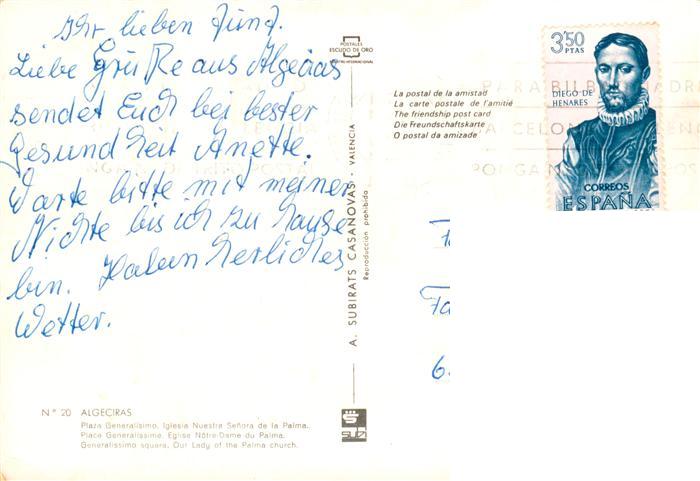 Ihr lieben Fünf.
Liebe Grüße aus Algecias
sendet Euch bei bester
Gesundheit Anette.
Warte bitte mit meiner
Nichte bis ich zu Hause
bin. Haben herliches
Wetter.
Nº 20 ALGECIRAS
Plaza Generalísimo, Iglesia Nuestra Señora de la Palma.
Place Generalissime, Eglise Nôtre-Dame du Palma.
Generalissimo square, Our Lady of the Palma church.
POSTALES
ESCUDO DE ORO
A. SUBIRATS CASANOVAS - VALENCIA
Reproducción prohibida
La postal de la amistad
La carte postale de l'amitié
The friendship post card
Die Freundschaftskarte
O postal da amizade
3'50
PTAS
DIEGO DE
HENARES
CORREOS
ESPAÑA
PARA BILBAO MADR